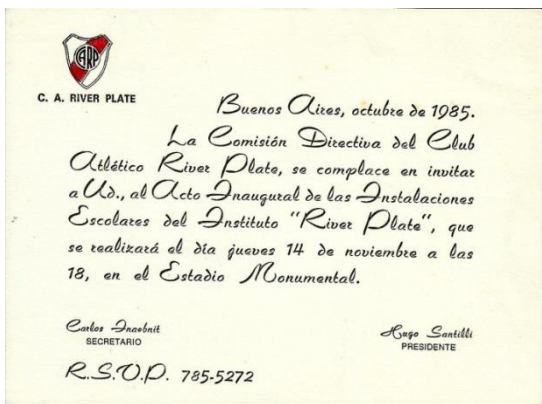 CARP
C. A. RIVER PLATE
Buenos Aires, octubre de 1985.
La Comisión Directiva del Club
Atlético River Plate, se complace en invitar
a Ud., al Acto Inaugural de las Instalaciones
Escolares del Instituto "River Plate", que
se realizará el día jueves 14 de noviembre a las
18, en el Estadio Monumental.
Carlos Inaebnit
SECRETARIO
Hugo Santilli
PRESIDENTE
R.S.V.P. 785-5272